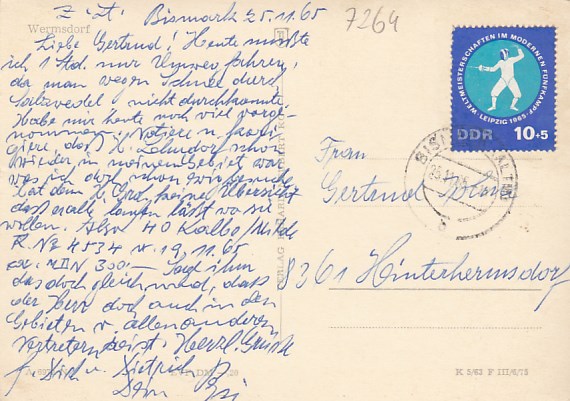 Wermsdorf
z. Zt. Bismark 25.11.65
Liebe Gertrud! Heute mußte
ich 1 Std. nur Umwege fahren,
da man wegen Schnee durch
Salzwedel nicht durchkonnte.
Habe mir heute noch viel vorge-
nommen. Notiere u. 
giere, daß H. Zehndorf schon
wieder in meinem Gebiet war
was ich doch schon
Hat denn H. Graf keine Übersicht
daß er alle laufen läßt wo sie
wollen. Also 40
R. No 4534 v. 19.11.65
MDN 300.— Sagt ihm
das doch gleich mal, daß
der Herr doch auch in den
Gebieten v. allen anderen
Vertretern reist. Herzl. Grüße
f. Dich u. Dietrich
Dein
7264
WELTMEISTERSCHAFTEN IM MODERNEN FÜNFKAMPF
LEIPZIG 1965
DDR 10+5
Frau
Gertrud
8361 Hinterhermsdorf
K 5/63 F III/6/73